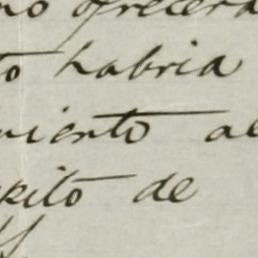 no ofrecera
to habria
miento al
rito de